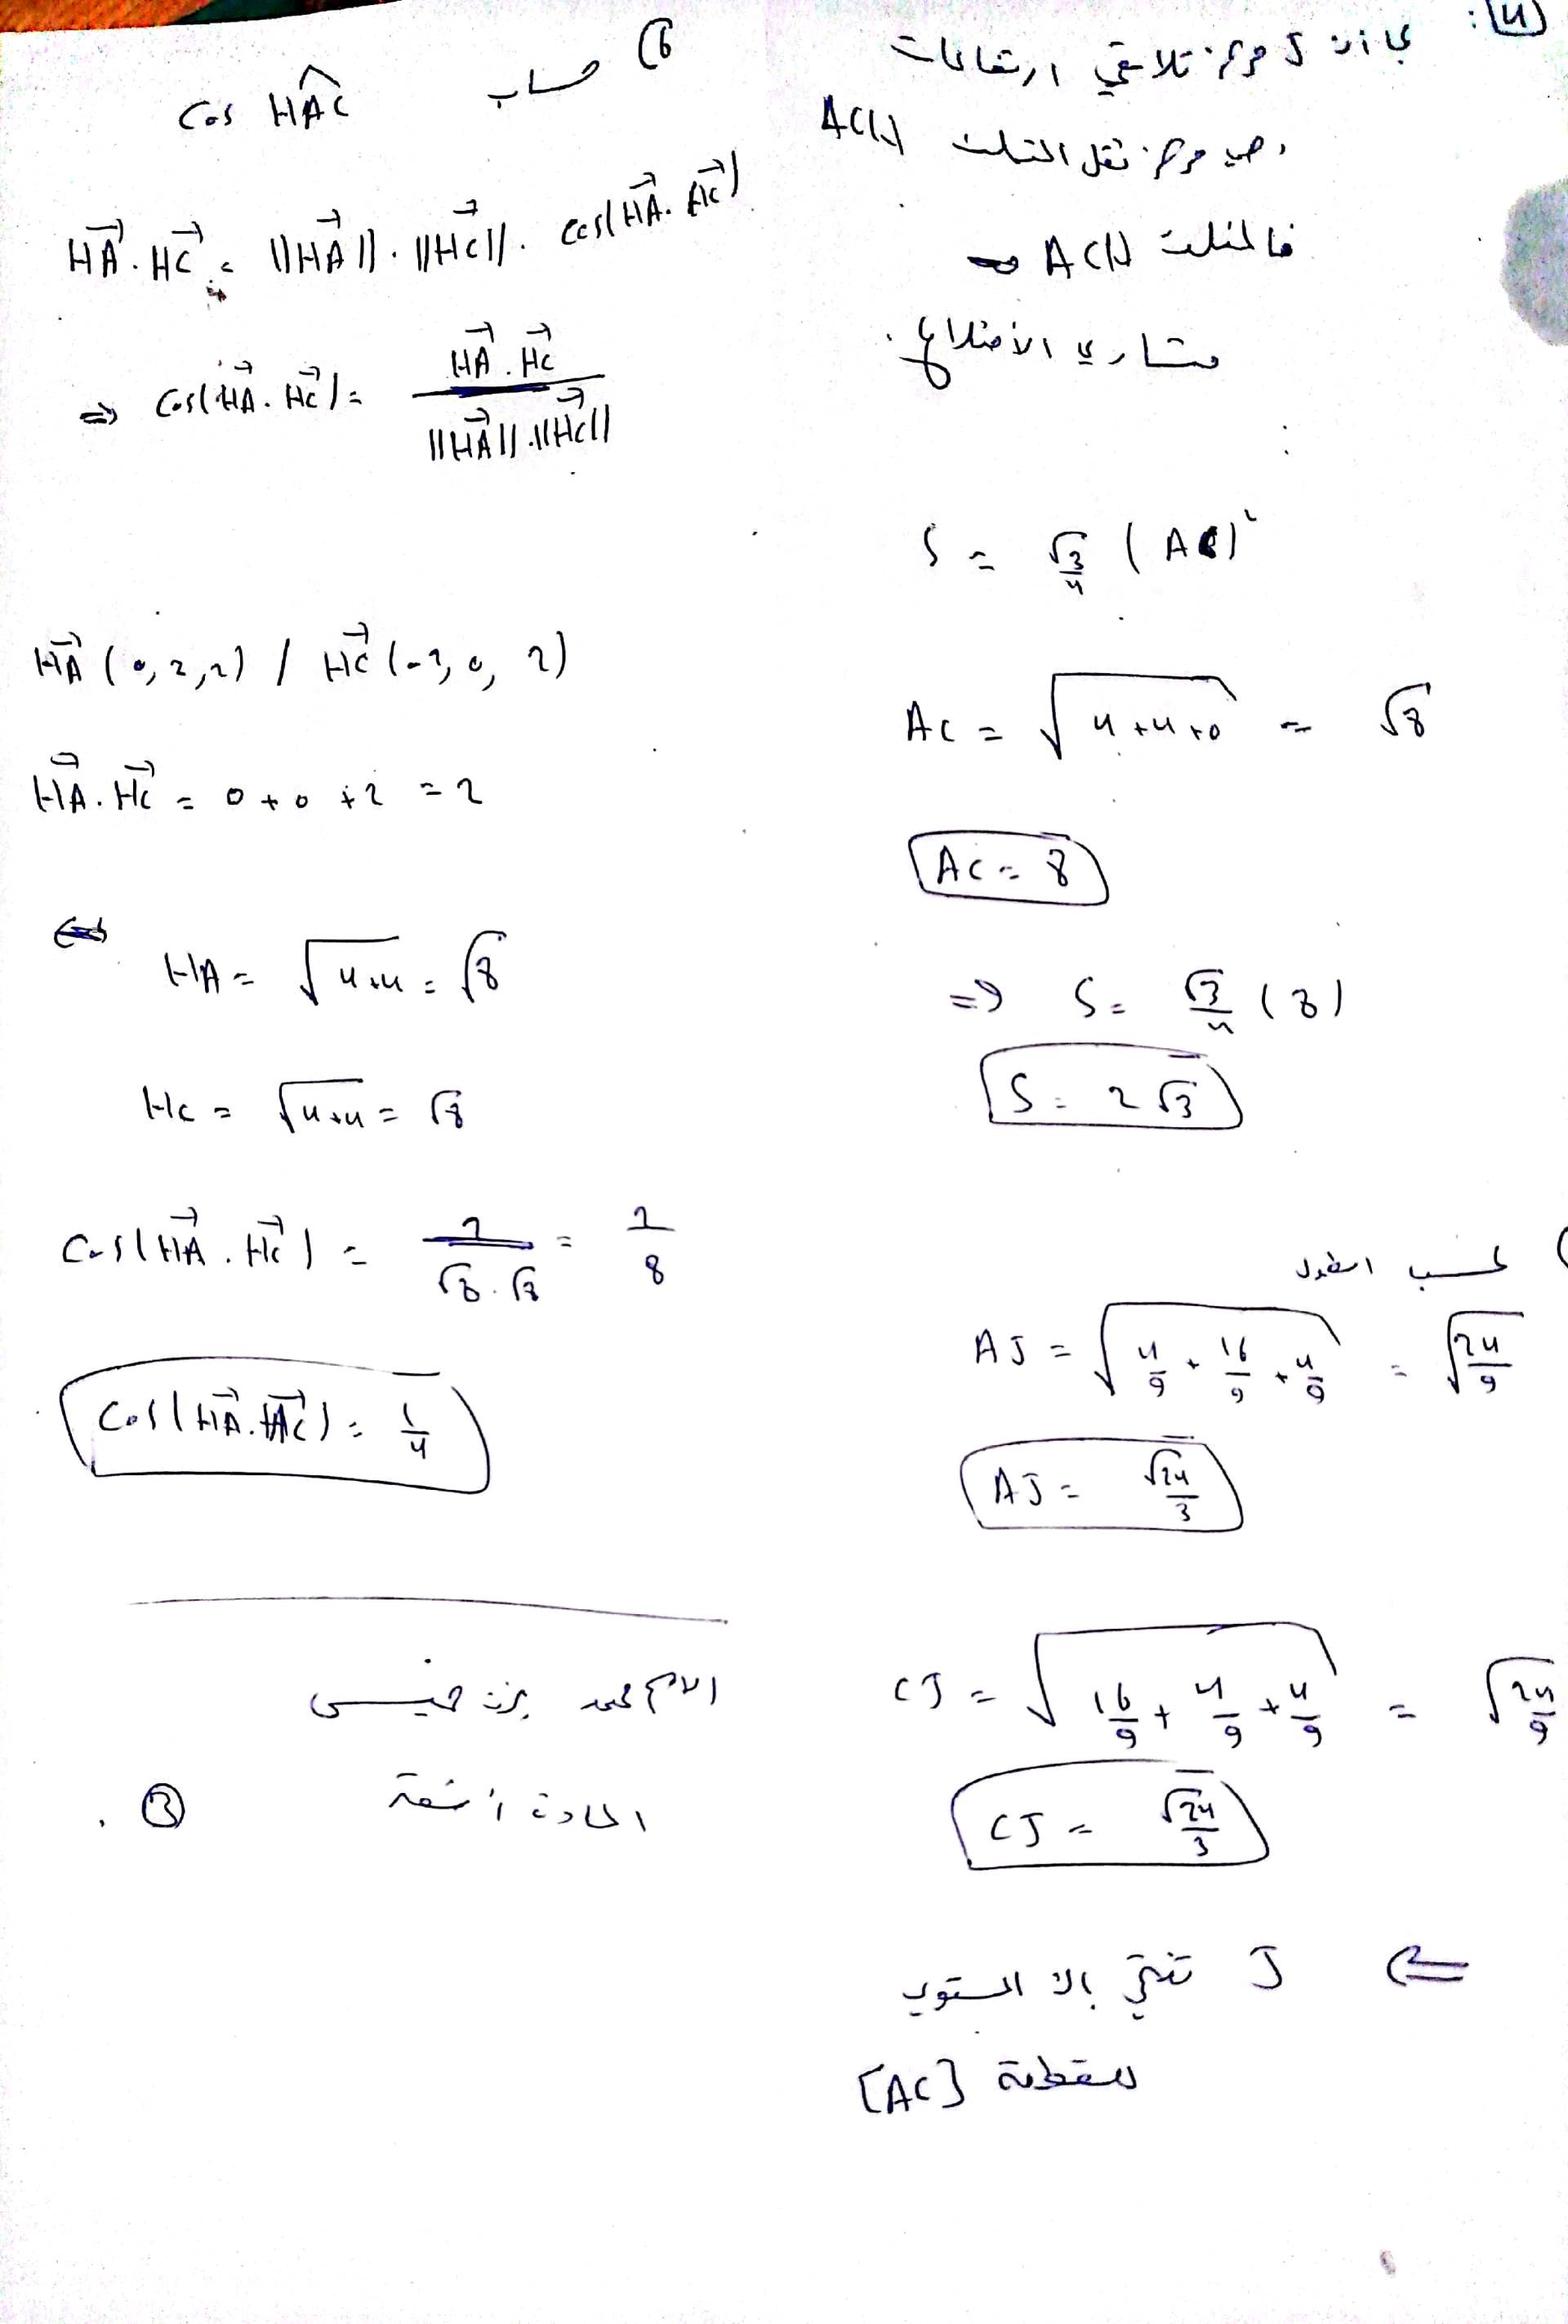 4:
بما أن J مركز تلاقي ارتفاعات
وهي مركز ثقل المثلث ACH
فالمثلث ACH
متساوي الأضلاع.
S = √3/4 (AC)²
AC = √(4+4+0) = √8
AC = 8
⇒ S = √3/4 (8)
S = 2√3
نحسب الطول
AJ = √(4/9 + 16/9 + 4/9) = √(24/9)
AJ = √24/3
CJ = √(16/9 + 4/9 + 4/9) = √(24/9)
CJ = √24/3
⇐ J تنتمي
للقطعة [AC]
6) حساب cos HAC
HA . HC = ||HA|| . ||HC|| . cos(HA . HC)
⇒ cos(HA . HC) = HA . HC / ||HA|| . ||HC||
HA (0, 2, 2) / HC (-2, 0, 2)
HA . HC = 0 + 0 + 2 = 2
HA = √(4+4) = √8
HC = √(4+4) = √8
Cos(HA . HC) = 2/√8 . √8 = 2/8
Cos(HA . AC) = 1/4
الاسم محمد
المادة أشعة
3